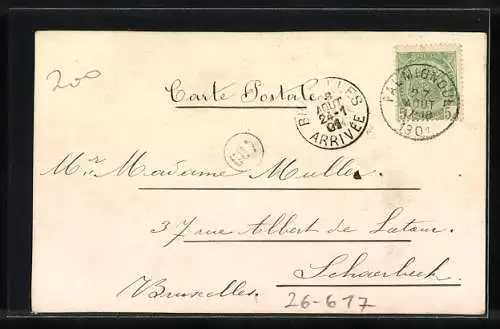 200
Carte Postale
BRUXELLES
AOUT
24-1
01
ARRIVÉE
27
AOUT
1901
Mr. Madame Muller
37 rue Albert de Latour
Schaerbeek
Bruxelles.
26-617